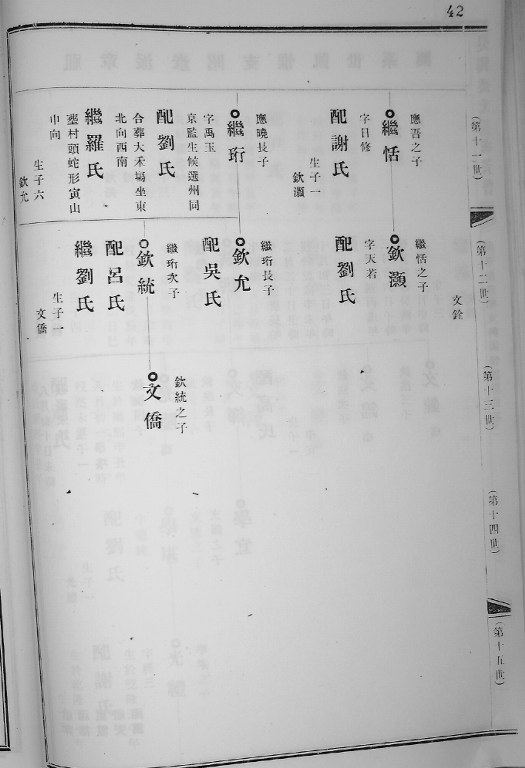 42
(第十一世)
應吾之子
繼恬
字日修
配謝氏
生子一
欽灝
應曉長子
繼珩
字禹玉
京監生候選州同
配劉氏
合葬大禾場坐東
北向西南
繼羅氏
壟村頭蛇形寅山
申向
生子六
欽允
(第十二世)
文銓
繼恬之子
欽灝
字天若
配劉氏
繼珩長子
欽允
配吳氏
繼珩次子
欽統
配呂氏
繼劉氏
生子一
文僑
(第十三世)
欽統之子
文僑
(第十四世)
(第十五世)